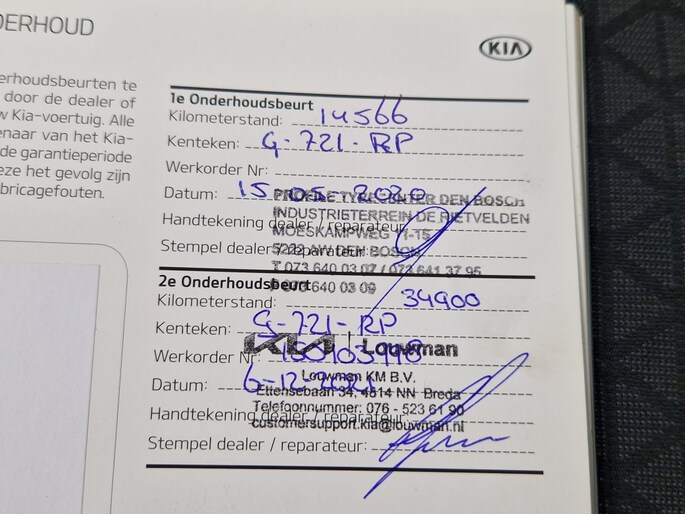 DERHOUD
KIA
erhoudsbeurten te
door de dealer of
w Kia-voertuig. Alle
enaar van het Kia-
de garantieperiode
eze het gevolg zijn
bricagefouten.
1e Onderhoudsbeurt
Kilometerstand: 14566
Kenteken: G-721-RP
Werkorder Nr:
Datum: 15-05-2020
PROFILE TYRECENTER DEN BOSCH
INDUSTRIETERREIN DE RIETVELDEN
Handtekening dealer / reparateur:
MOESKAMPWEG 11-15
Stempel dealer / reparateur:
5222 AW DEN BOSCH
T 073 640 03 07 / 073 641 37 95
073 640 03 09
2e Onderhoudsbeurt
Kilometerstand: 34900
Kenteken: G-721-RP
KIA Louwman
Werkorder Nr:
Louwman KM B.V.
Datum: 6-12-2021
Ettensebaan 34, 4814 NN Breda
Telefoonnummer: 076 - 523 61 90
Handtekening dealer / reparateur:
customersupport.kia@louwman.nl
Stempel dealer / reparateur: